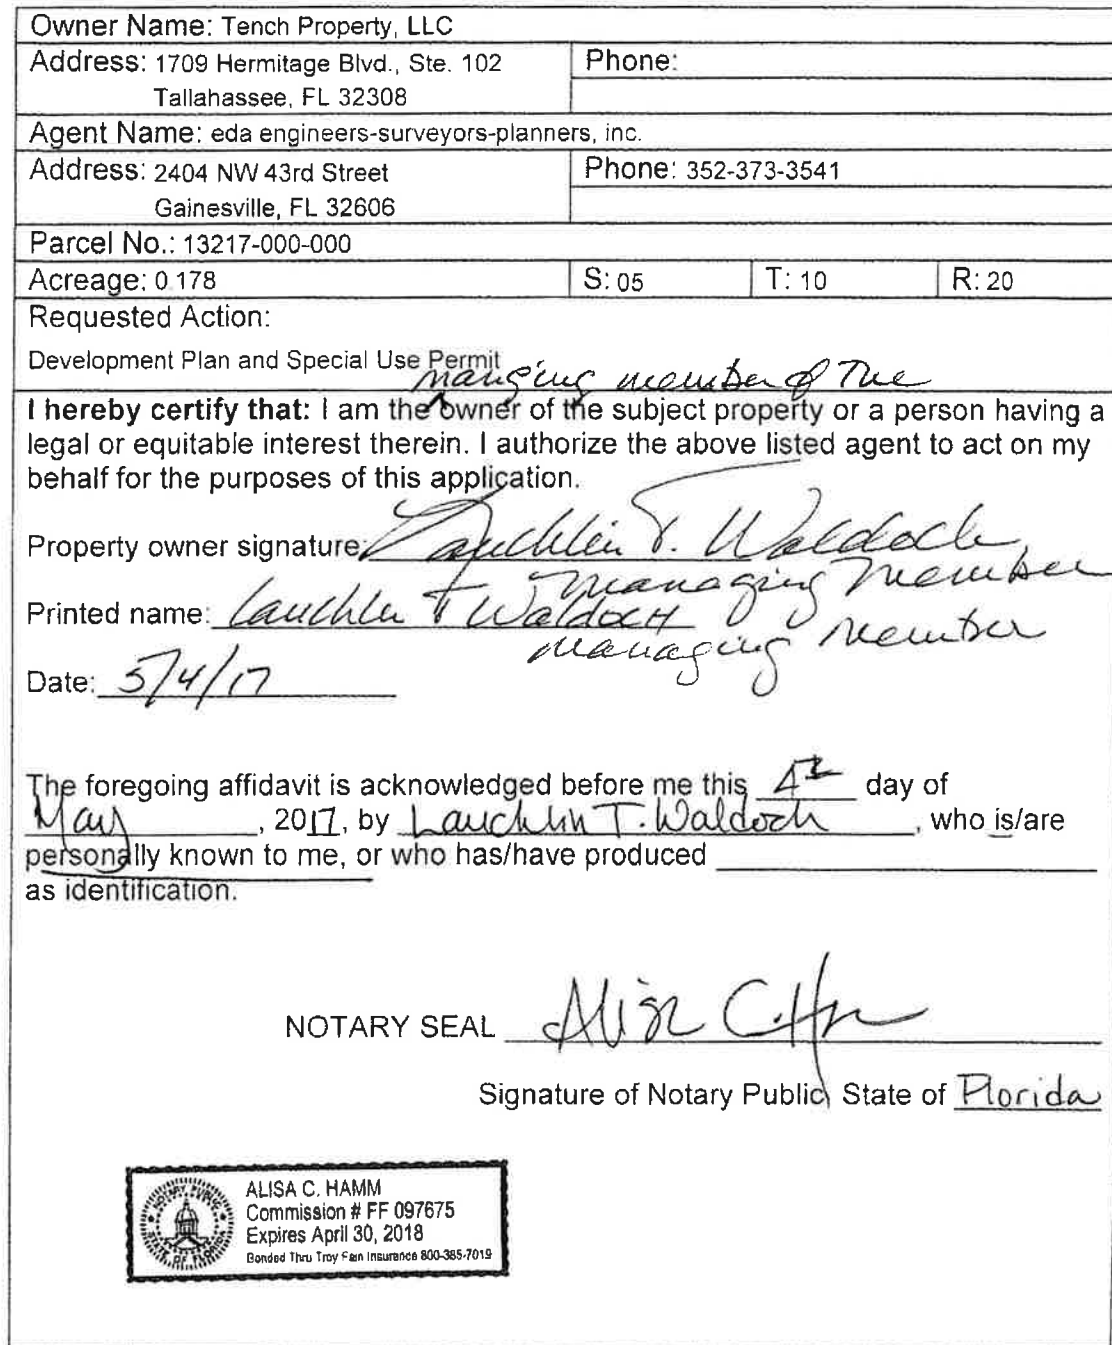 Owner Name: Tench Property, LLC
Address: 1709 Hermitage Blvd., Ste. 102
Tallahassee, FL 32308
Phone:
Agent Name: eda engineers-surveyors-planners, inc.
Address: 2404 NW 43rd Street
Gainesville, FL 32606
Phone: 352-373-3541
Parcel No.: 13217-000-000
Acreage: 0.178 S: 05 T: 10 R: 20
Requested Action:
Development Plan and Special Use Permit
manging member of The
I hereby certify that: I am the owner of the subject property or a person having a
legal or equitable interest therein. I authorize the above listed agent to act on my
behalf for the purposes of this application.
Property owner signature: Lauchlin T. Waldoch
Managing Member
Printed name: Lauchlin T Waldoch
Managing Member
Date: 5/4/17
The foregoing affidavit is acknowledged before me this 4th day of
May, 2017, by Lauchlin T. Waldoch, who is/are
personally known to me, or who has/have produced
as identification.
NOTARY SEAL Alisa C. Hamm
Signature of Notary Public, State of Florida
NOTARY PUBLIC
STATE OF FLORIDA
ALISA C. HAMM
Commission # FF 097675
Expires April 30, 2018
Bonded Thru Troy Fain Insurance 800-385-7019